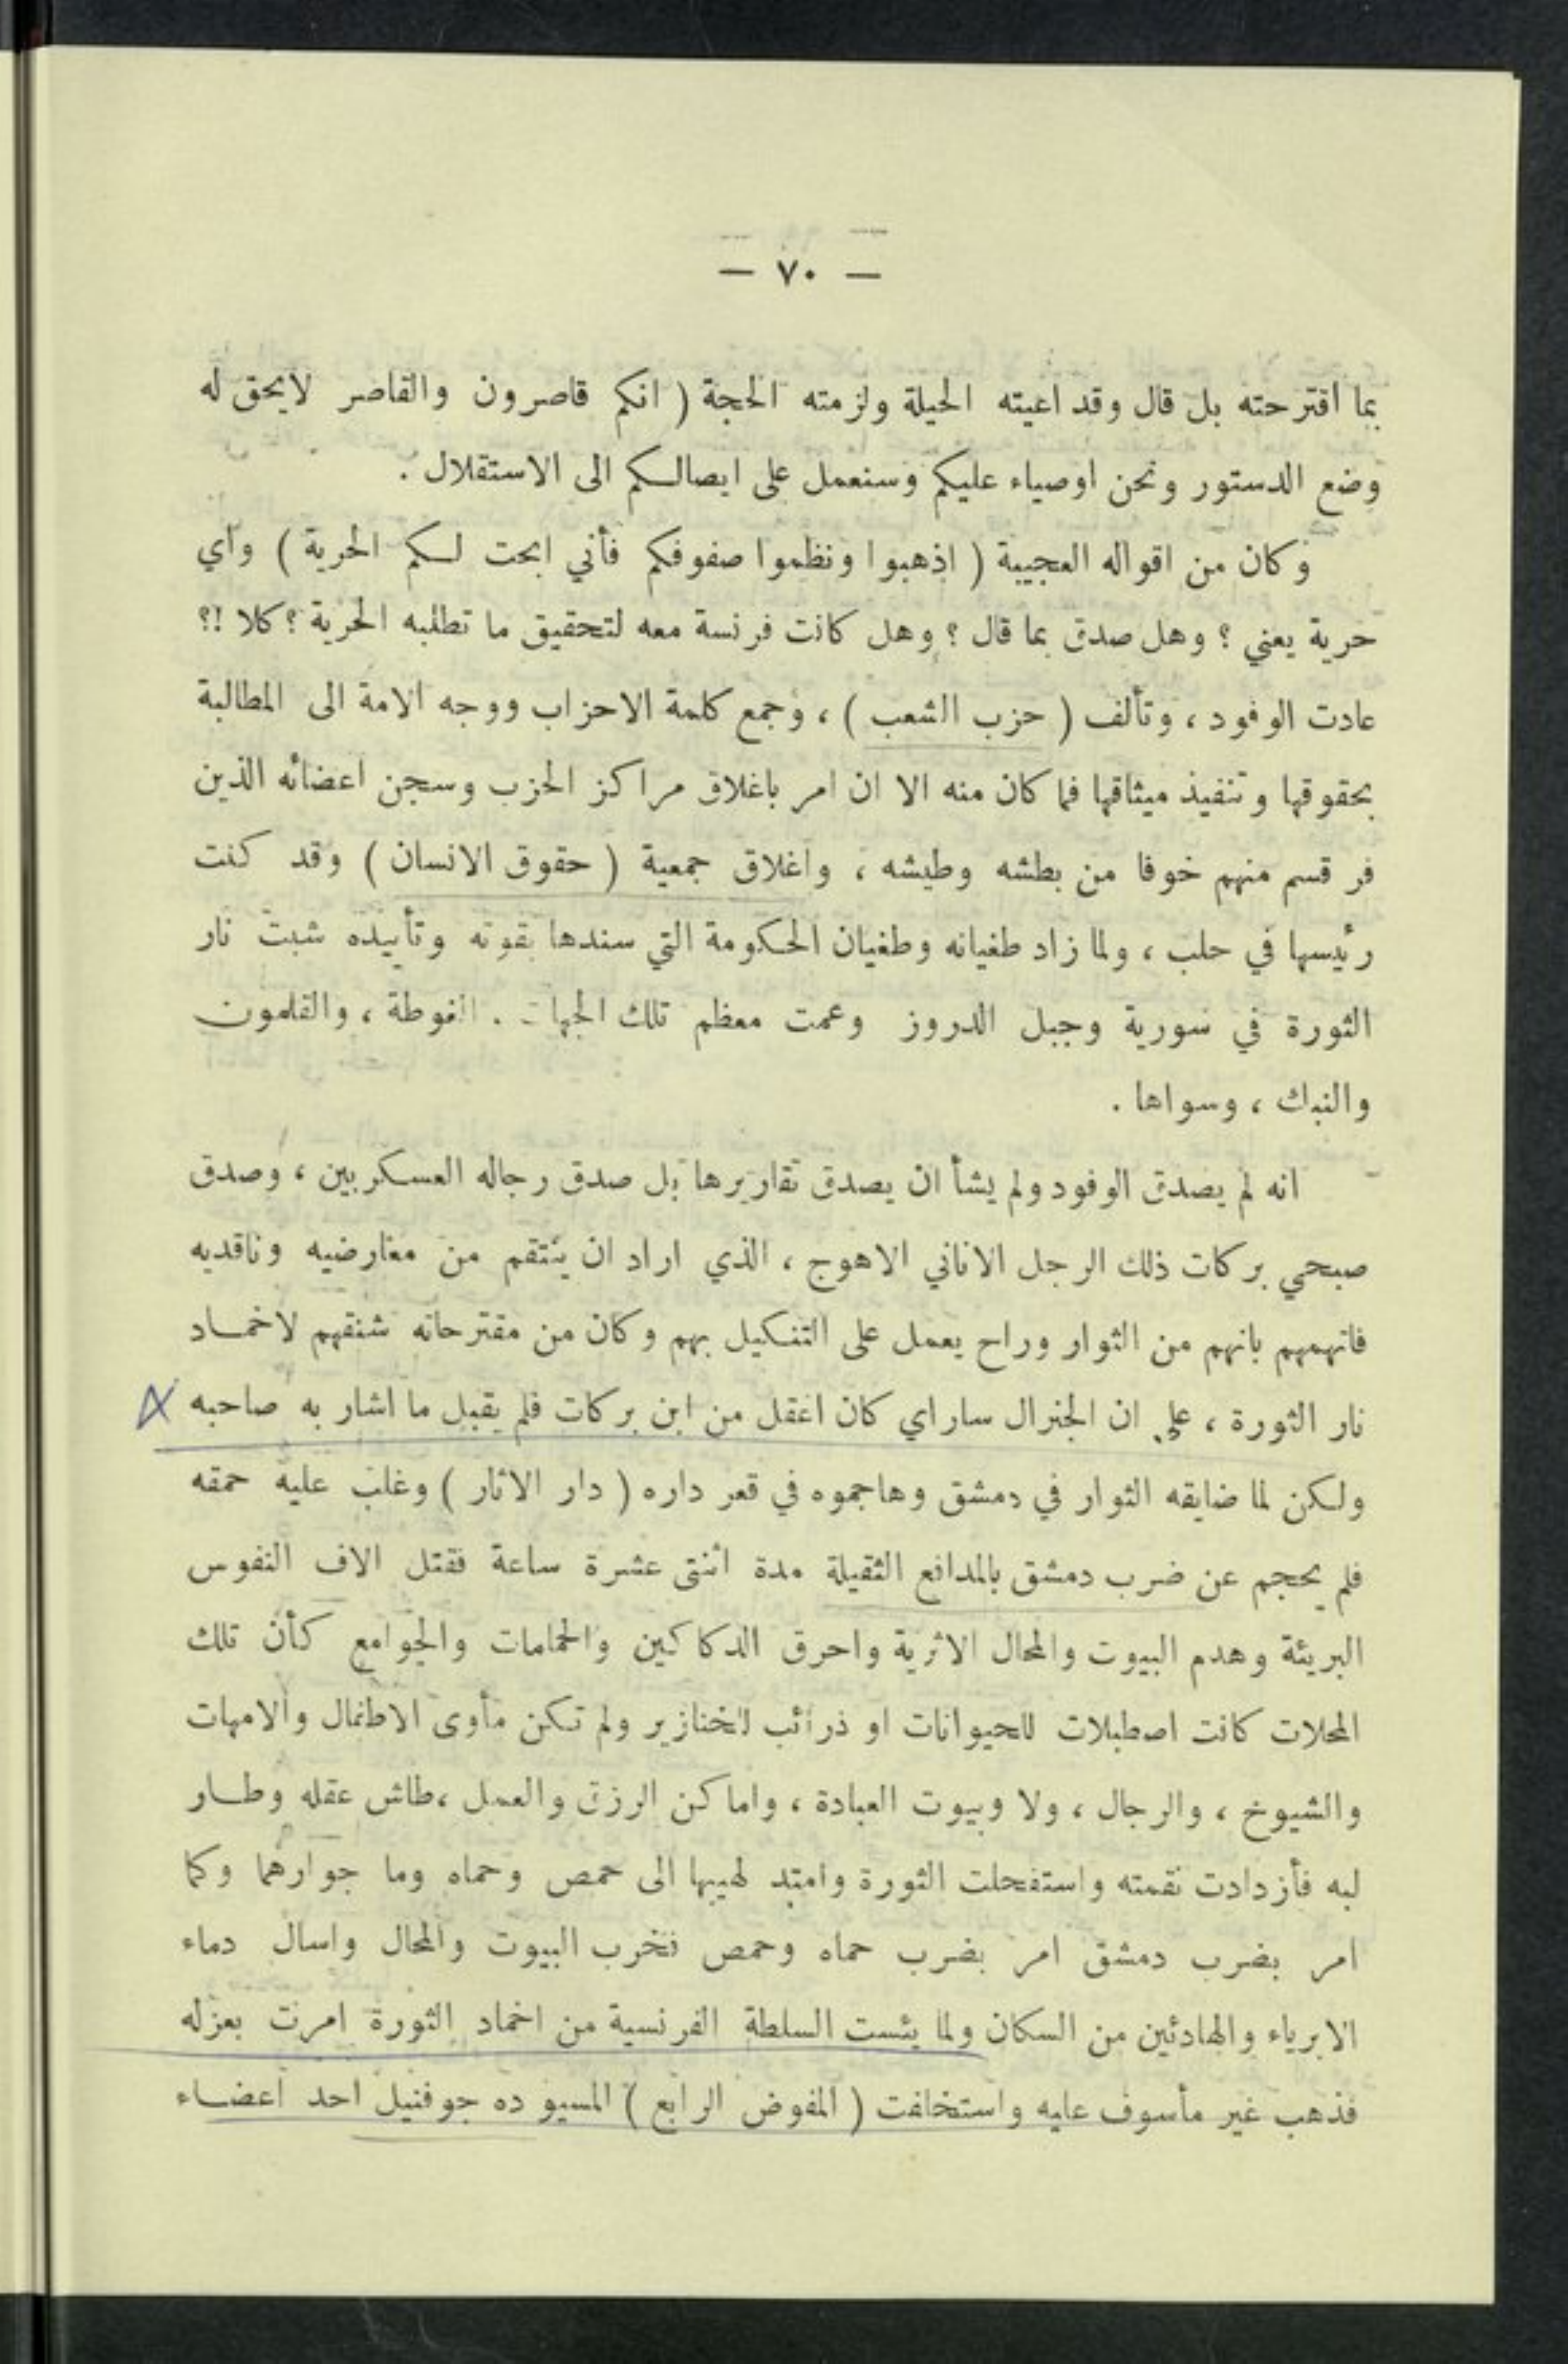 — ٧٠ —
بما اقترحته بل قال وقد اعيته الحيلة ولزمته الحجة ( انكم قاصرون والقاصر لايحق له
وضع الدستور ونحن اوصياء عليكم وسنعمل على ايصالكم الى الاستقلال .
وكان من اقواله العجيبة ( اذهبوا ونظموا صفوفكم فأني ابحت لكم الحرية ) وأي
حرية يعني ؟ وهل صدق بما قال ؟ وهل كانت فرنسة معه لتحقيق ما تطلبه الحرية ؟ كلا !؟
عادت الوفود ، وتألف ( حزب الشعب ) ، وجمع كلمة الاحزاب ووجه الامة الى المطالبة
بحقوقها وتنفيذ ميثاقها فما كان منه الا ان امر باغلاق مراكز الحزب وسجن اعضائه الذين
فر قسم منهم خوفا من بطشه وطيشه ، واغلاق جمعية ( حقوق الانسان ) وقد كنت
رئيسها في حلب ، ولما زاد طغيانه وطغيان الحكومة التي سندها بقوته وتأييده شبت نار
الثورة في سورية وجبل الدروز وعمت معظم تلك الجهات . الغوطة ، والقلمون
والنبك ، وسواها .
انه لم يصدق الوفود ولم يشأ ان يصدق تقاريرها بل صدق رجاله العسكريين ، وصدق
صبحي بركات ذلك الرجل الاناني الاهوج ، الذي اراد ان ينتقم من معارضيه وناقديه
فاتهمهم بانهم من الثوار وراح يعمل على التنكيل بهم وكان من مقترحاته شنقهم لاخماد
نار الثورة ، على ان الجنرال ساراي كان اعقل من ابن بركات فلم يقبل ما اشار به صاحبه
ولكن لما ضايقه الثوار في دمشق وهاجموه في قعر داره ( دار الاثار ) وغلب عليه حمقه
فلم يحجم عن ضرب دمشق بالمدافع الثقيلة مدة اثنتى عشرة ساعة فقتل الاف النفوس
البريئة وهدم البيوت والمحال الاثرية واحرق الدكاكين والحمامات والجوامع كأن تلك
المحلات كانت اصطبلات للحيوانات او ذرائب للخنازير ولم تكن مأوى الاطفال والامهات
والشيوخ ، والرجال ، ولا وبيوت العبادة ، واماكن الرزق والعمل ،طاش عقله وطار
لبه فأزدادت نقمته واستفحلت الثورة وامتد لهيبها الى حمص وحماه وما جوارهما وكما
امر بضرب دمشق امر بضرب حماه وحمص فخرب البيوت والمحال واسال دماء
الابرياء والهادئين من السكان ولما يئست السلطة الفرنسية من اخماد الثورة امرت بعزله
فذهب غير مأسوف عليه واستخلفت ( المفوض الرابع ) المسيو ده جوفنيل احد اعضاء